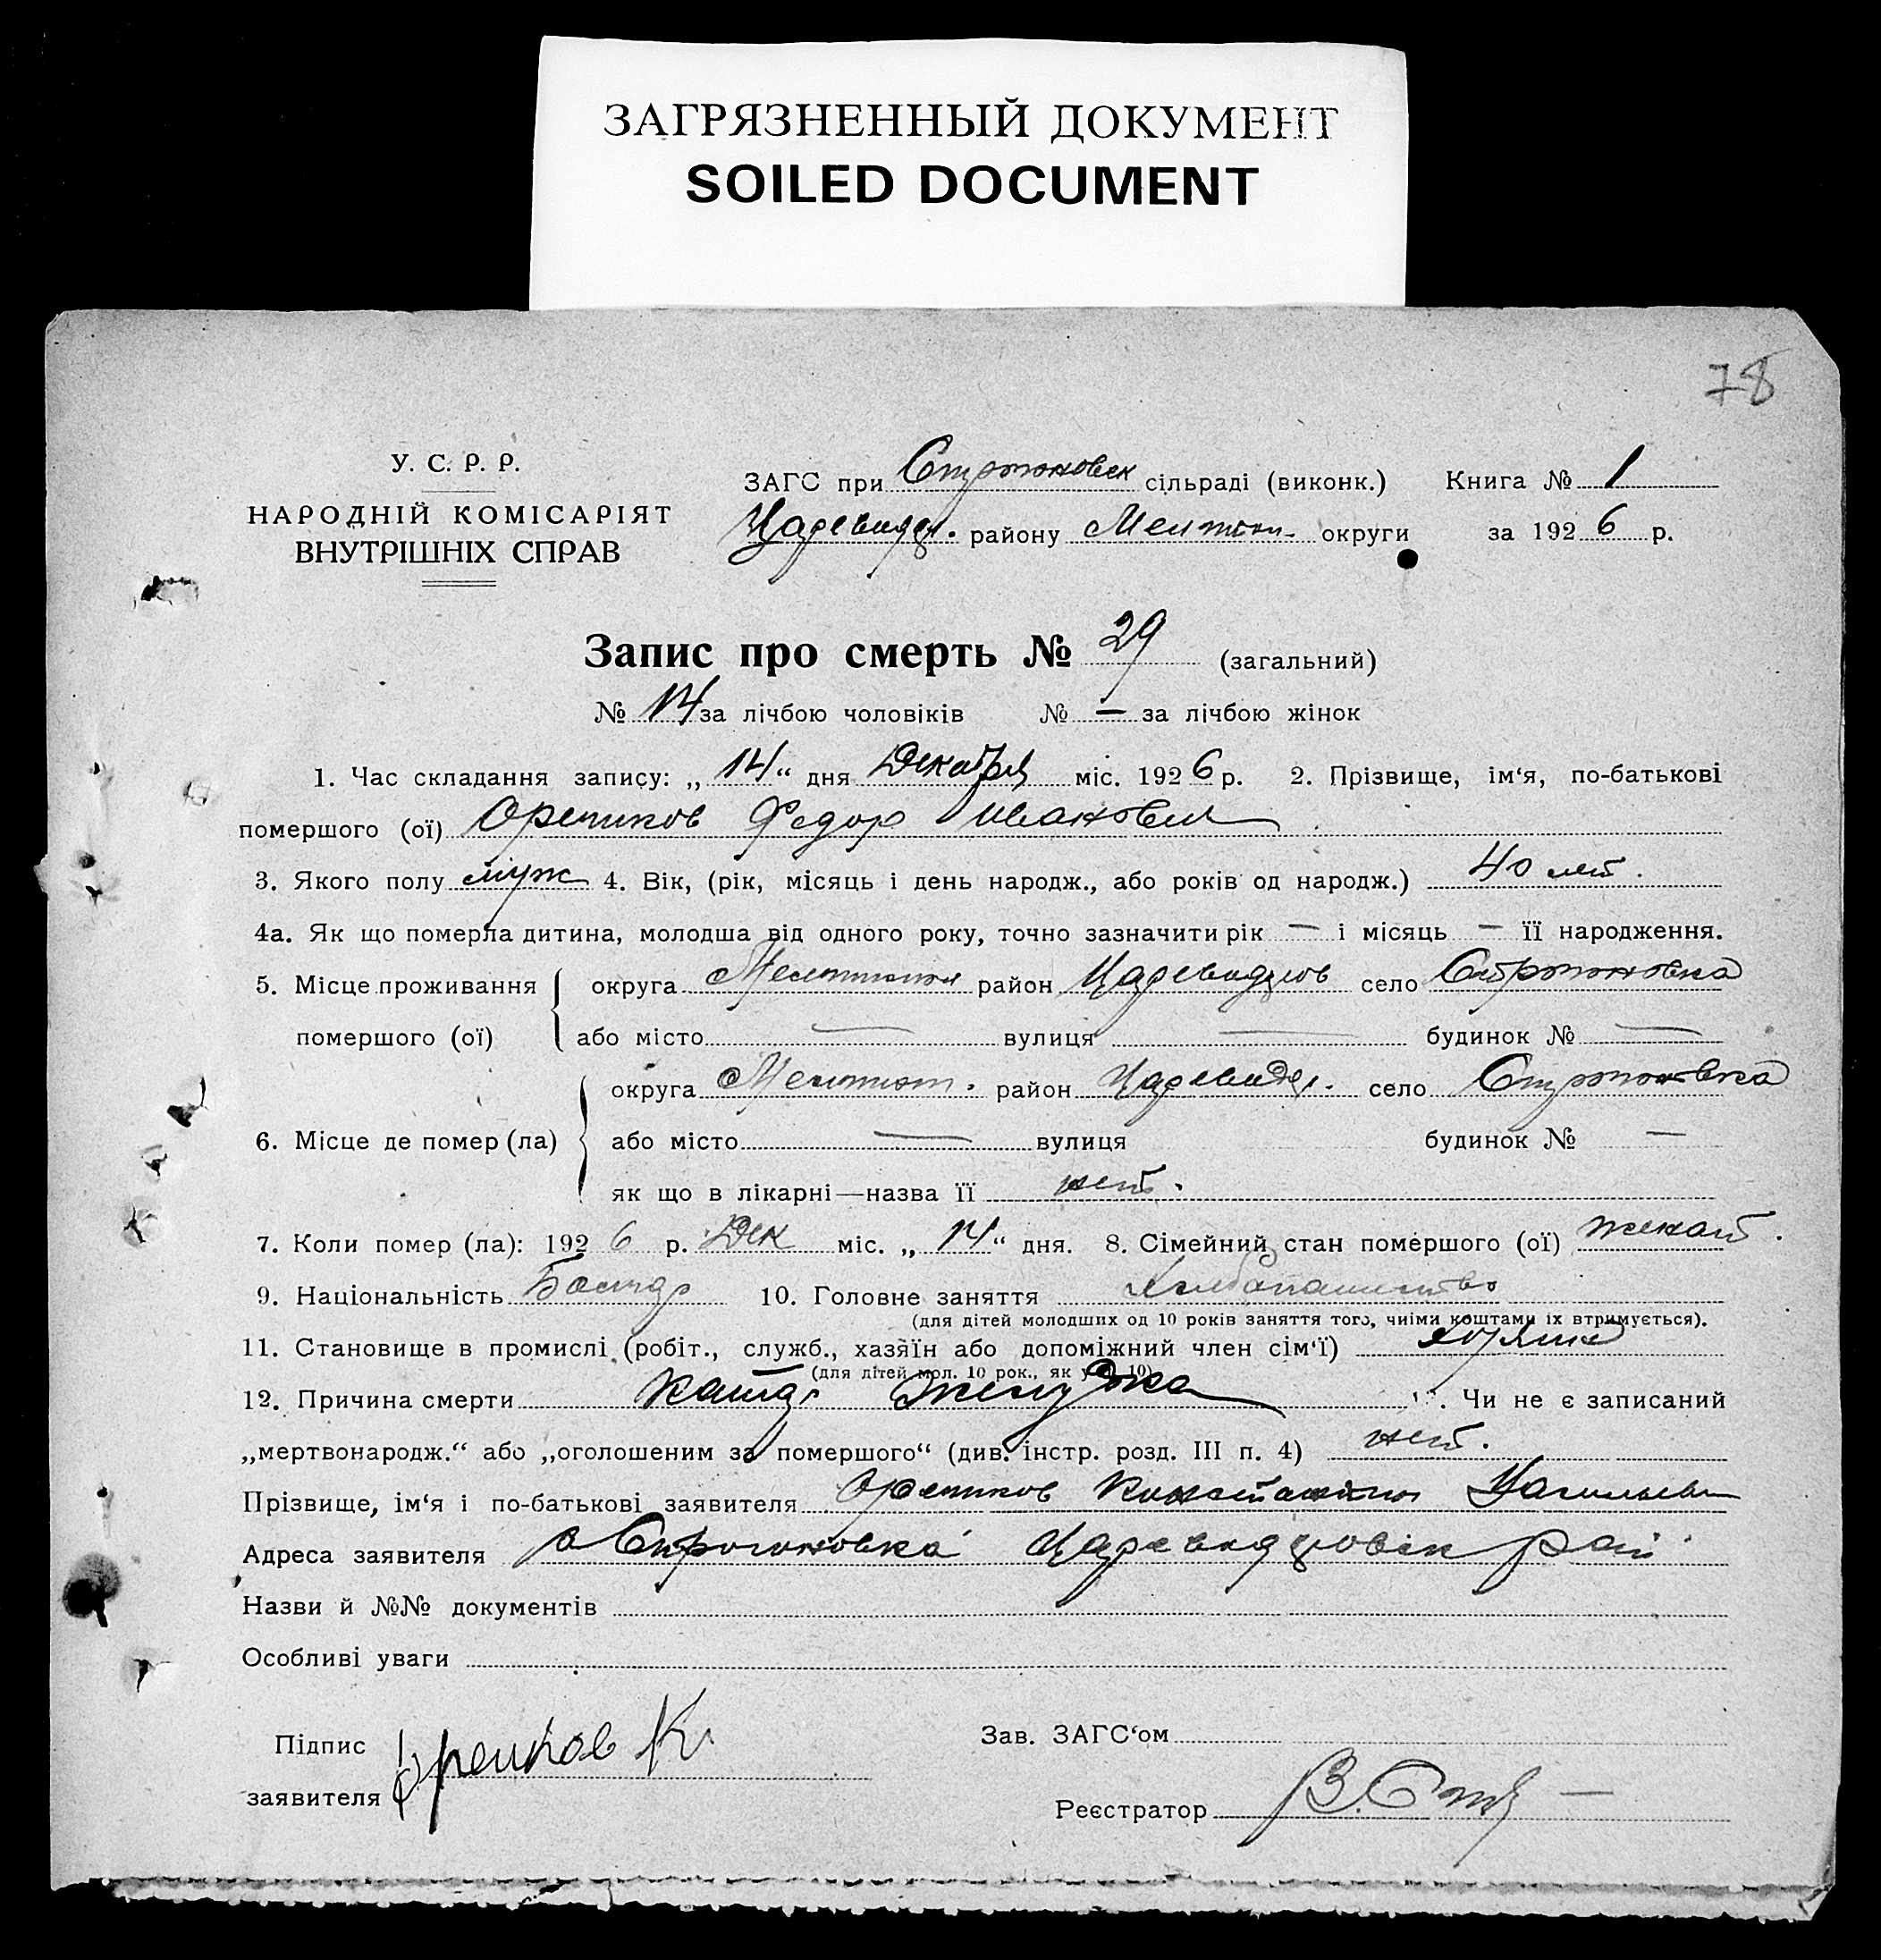 ЗАГРЯЗНЕННЫЙ ДОКУМЕНТ
SOILED DOCUMENT
78
У. С. Р. Р.
НАРОДНІЙ КОМІСАРІЯТ
ВНУТРІШНІХ СПРАВ
ЗАГС при Строгоновск сільраді (виконк.) Книга № 1
Цареводар. району Мелитоп. округи за 1926 р.
Запис про смерть № 29 (загальний)
№ 14 за лічбою чоловіків № — за лічбою жінок
1. Час складання запису: „14“ дня Декабря міс. 1926 р. 2. Прізвище, ім‘я, по-батькові
помершого (ої) Орешков Федор Иванович
3. Якого полу муж 4. Вік, (рік, місяць і день народж., або років од народж.) 40 лет.
4а. Як що померла дитина, молодша від одного року, точно зазначити рік — і місяць — її народження.
5. Місце проживання округа Мелитопол район село Строгоновка
помершого (ої) або місто — вулиця — будинок № —
округа Мелитоп. район село Строгоновка
6. Місце де помер (ла) або місто — вулиця будинок № —
як що в лікарні—назва її нет.
7. Коли помер (ла): 1926 р. Дек міс. „14“ дня. 8. Сімейний стан помершого (ої) женат.
9. Національність Болгар 10. Головне заняття Хлебопашество
(для дітей молодших од 10 років заняття того, чиїми коштами їх втримується).
11. Становище в промислі (робіт., служб., хазяїн або допоміжний член сім‘ї) хозяин
(для дітей мол. 10 рок., як у п. 10)
12. Причина смерти Катар Желудка . Чи не є записаний
„мертвонародж.“ або „оголошеним за помершого“ (див. інстр. розд. III п. 4) нет.
Прізвище, ім‘я і по-батькові заявителя Орешков Константин
Адреса заявителя с Строгоновка рай
Назви й №№ документів
Особливі уваги
Підпис
заявителя Орешков К.
Зав. ЗАГС‘ом
Реєстратор